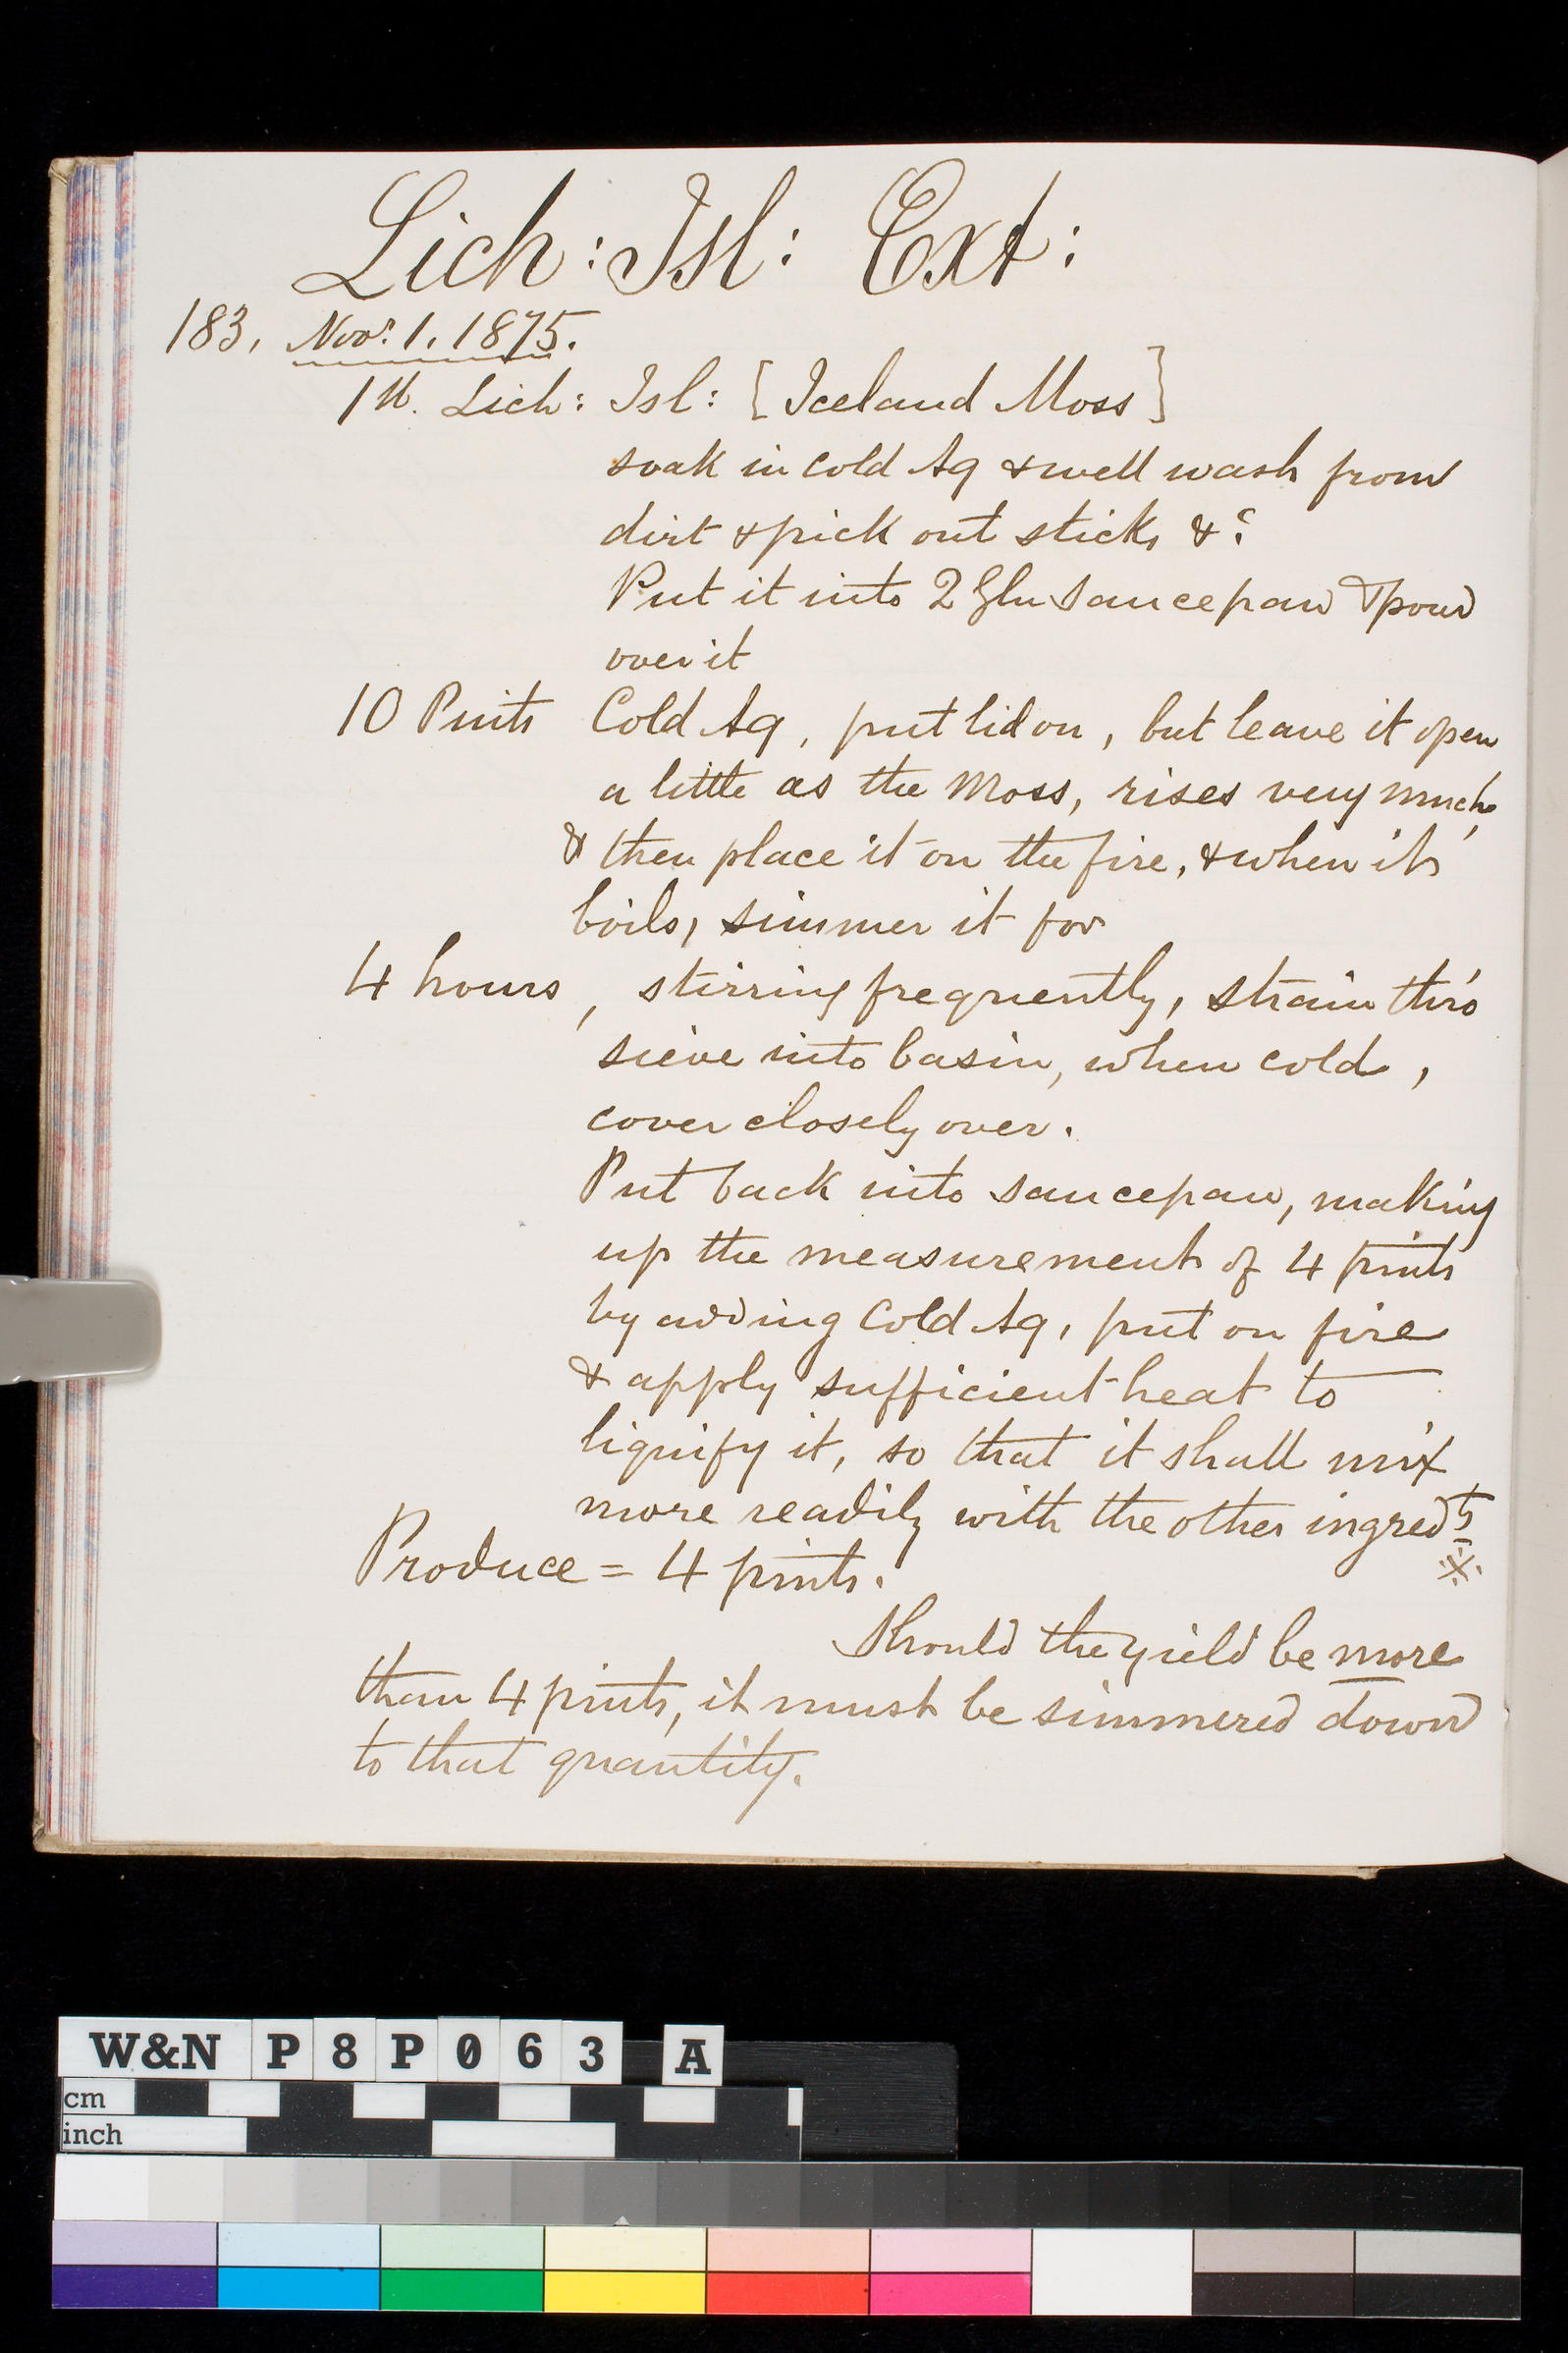 Lich: Isl: Ext:
183, Novr. 1. 1875.
1 lb. Lich: Isl: [Iceland Moss]
soak in cold Aq & well wash from
dirt & pick out sticks &c
Put it into 2 Gln saucepan & pour
over it
10 Pints Cold Aq, put lid on, but leave it open
a little as the Moss, rises very much,
& then place it on the fire, & when it
boils, simmer it for
4 hours, stirring frequently, strain thro'
sieve into basin, when cold,
cover closely over.
Put back into saucepan, making
up the measurement of 4 pints
by adding Cold Aq, put on fire
& apply sufficient heat to
liquify it, so that it shall mix
more readily with the other ingredts
Produce = 4 pints. ※
Should the yield be more
than 4 pints, it must be simmered down
to that quantity.
W&N P8P063 A
cm
inch